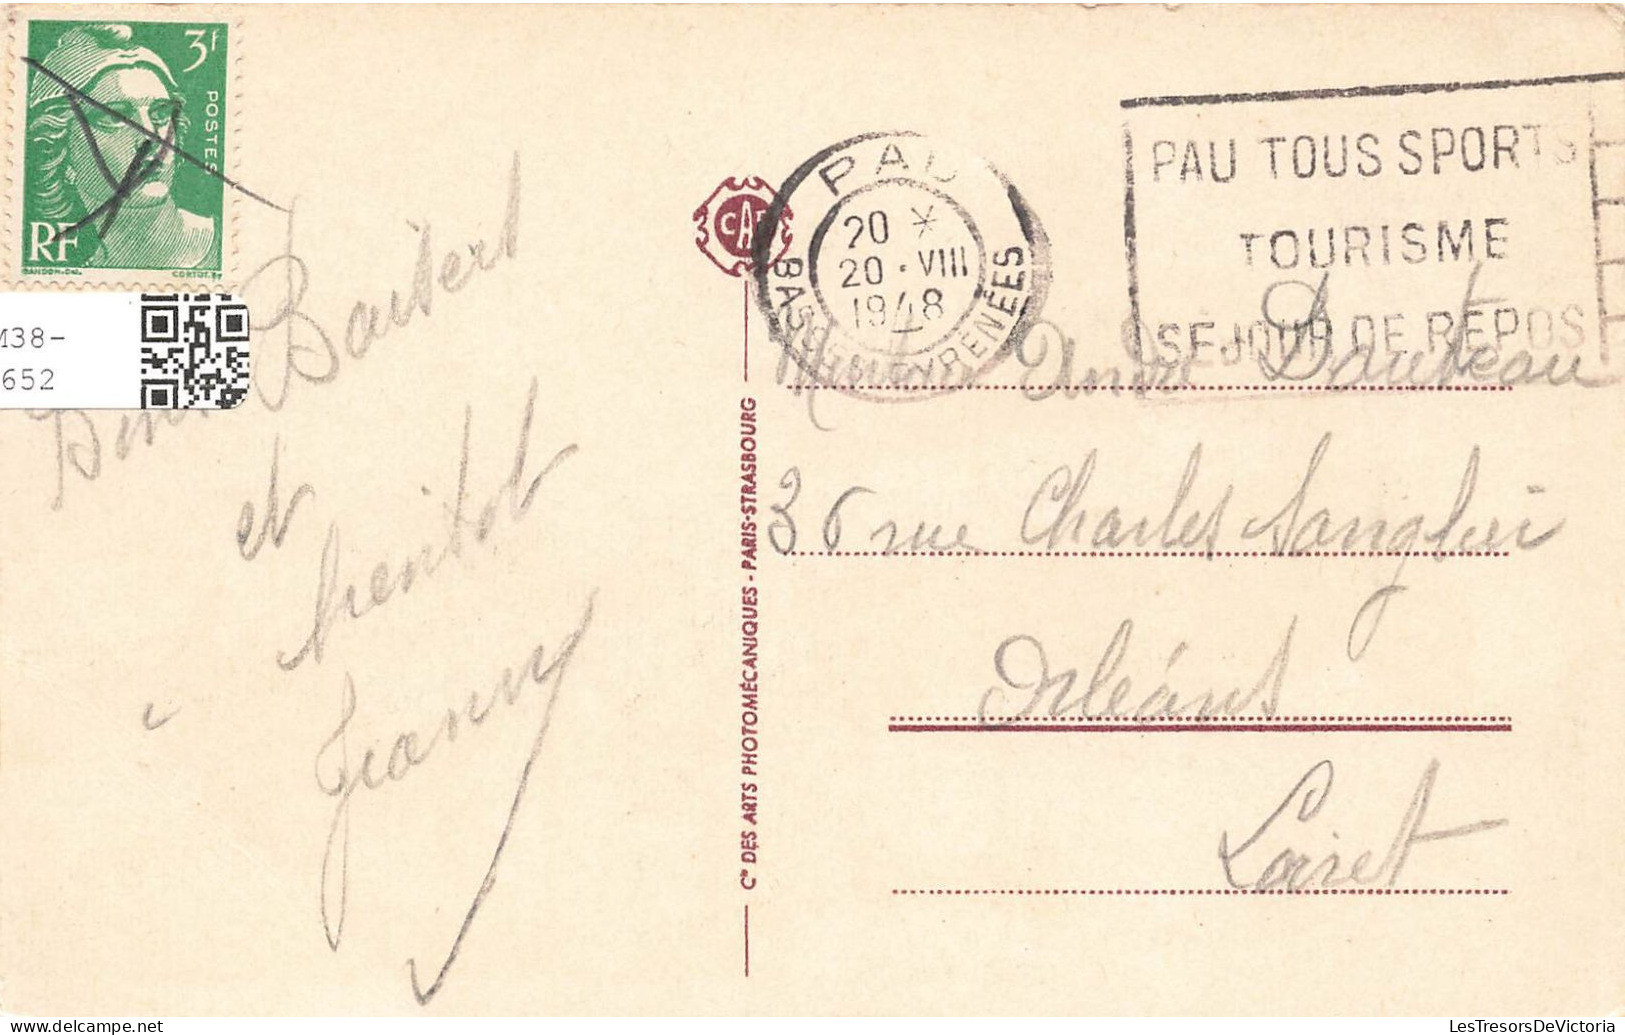 3f
POSTES
RF
GANDON-Del.
CORTOT
M38-
652
Baibert
et
bientot
Jeanny
CAP
Cie DES ARTS PHOTOMÉCANIQUES - PARIS-STRASBOURG
PAU
20 *
20 · VIII
1948
BASSES-PYRENÉES
PAU TOUS SPORTS
TOURISME
SEJOUR DE REPOS
André Dauteau
36 rue Charles Sanglier
Orléans
Loiret
LesTresorsDeVictoria